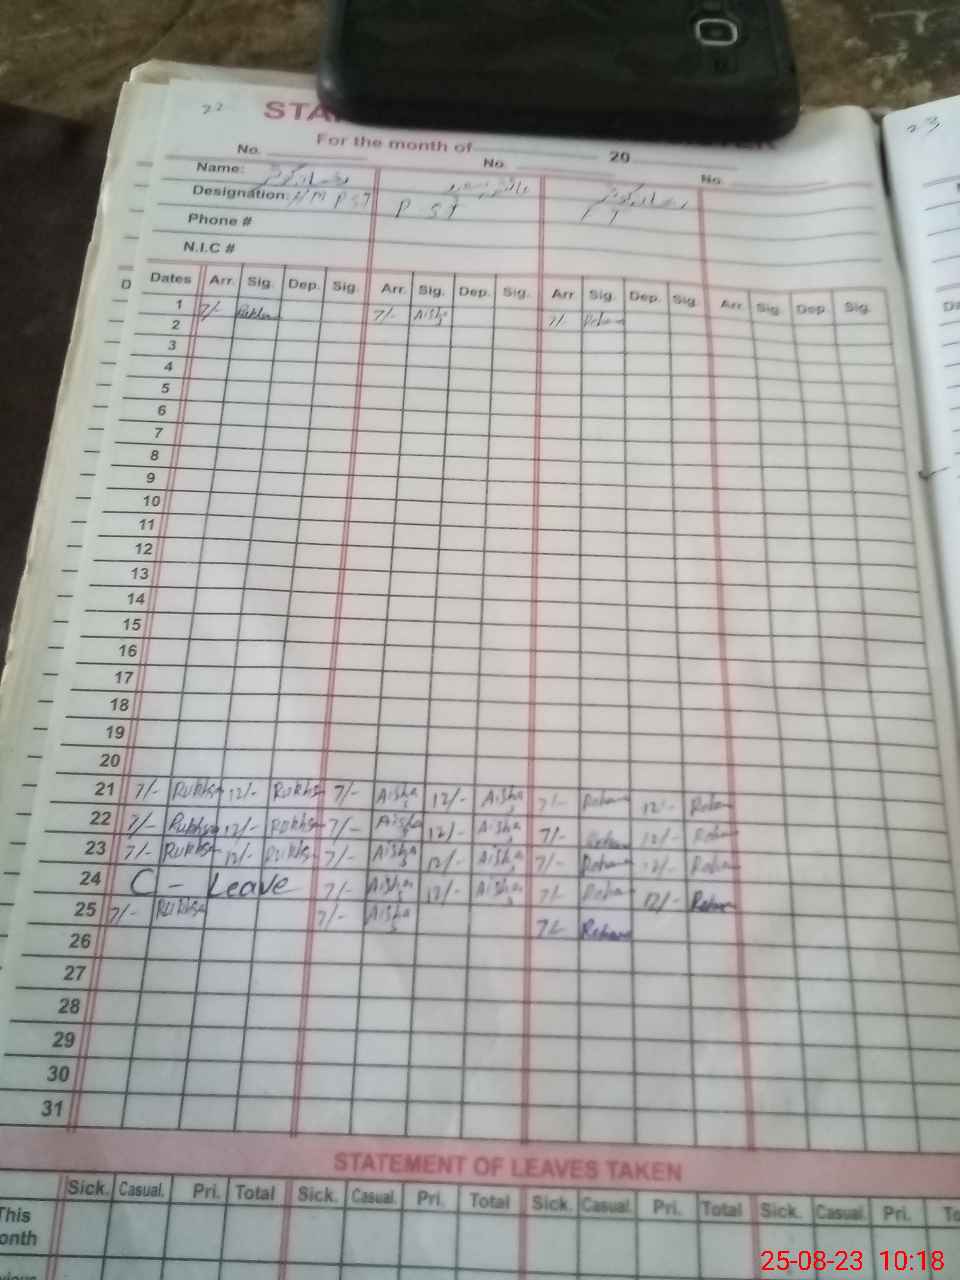 22
STA
For the month of 20
23
No. No. No.
Name:
Designation: H/M P S T P S T
Phone #
N.I.C #
Dates Arr. Sig. Dep. Sig. Arr. Sig. Dep. Sig. Arr. Sig. Dep. Sig. Arr. Sig. Dep. Sig.
1 7/- 7/- Aisha 7/- Rehana
2
3
4
5
6
7
8
9
10
11
12
13
14
15
16
17
18
19
20
21 7/- Rukhsa 12/- Rukhsa 7/- Aisha 12/- Aisha 7/- Rehana 12/- Rehana
22 7/- Rukhsa 12/- Rukhsa 7/- Aisha 12/- Aisha 7/- Rehana 12/- Rehana
23 7/- Rukhsa 12/- Rukhsa 7/- Aisha 12/- Aisha 7/- Rehana 12/- Rehana
24 C - Leave 7/- Aisha 12/- Aisha 7/- Rehana 12/- Rehana
25 7/- Rukhsa 7/- Aisha 7/- Rehana
26
27
28
29
30
31
STATEMENT OF LEAVES TAKEN
Sick. Casual. Pri. Total Sick. Casual. Pri. Total Sick. Casual. Pri. Total Sick. Casual. Pri. To
This
onth
25-08-23 10:18